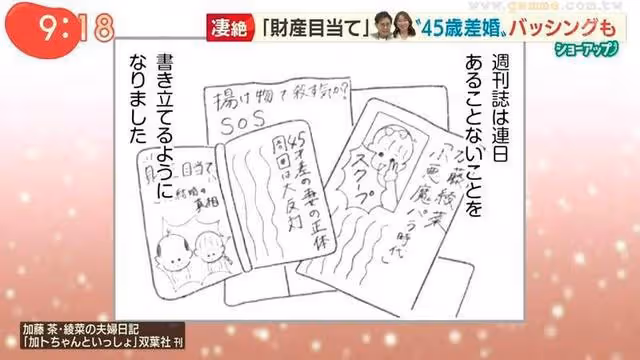 9:18
凄絶
「財産目当て」
"45歳差婚"バッシングも
ショーアップ♪
www.gamme.com.tw
週刊誌は連日
あることないことを
書き立てるように
なりました
揚げ物で殺す気か?
SOS
加藤綾菜
「小悪魔パラ時代」
スクープ
45才差の妻の正体
周囲は大反対
目当て
結婚の
真相
加藤 茶・綾菜の夫婦日記
「加トちゃんといっしょ」双葉社 刊